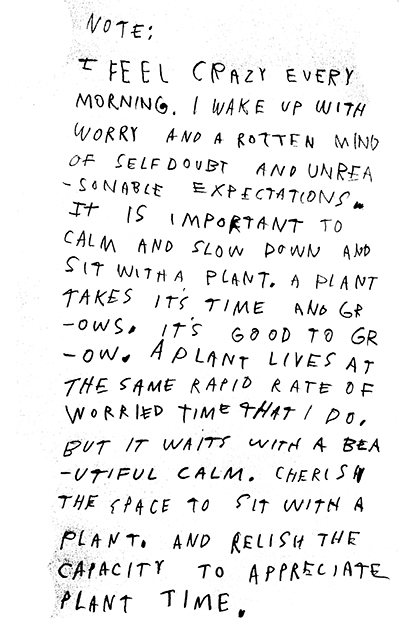 NOTE:
I FEEL CRAZY EVERY
MORNING. I WAKE UP WITH
WORRY AND A ROTTEN MIND
OF SELFDOUBT AND UNREA
-SONABLE EXPECTATIONS.
It IS IMPORTANT TO
CALM AND SLOW DOWN AND
SIT WITH A PLANT. A PLANT
TAKES IT'S TIME AND GR
-OWS. IT'S GOOD TO GR
-OW. A PLANT LIVES AT
THE SAME RAPID RATE OF
WORRIED TIME THAT I DO.
BUT IT WAITS WITH A BEA
-UTIFUL CALM. CHERISH
THE SPACE TO SIT WITH A
PLANT. AND RELISH THE
CAPACITY TO APPRECIATE
PLANT TIME.